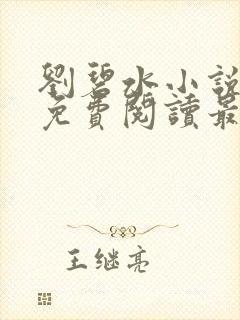 劉碧水小說
免費閱讀最
王继亮